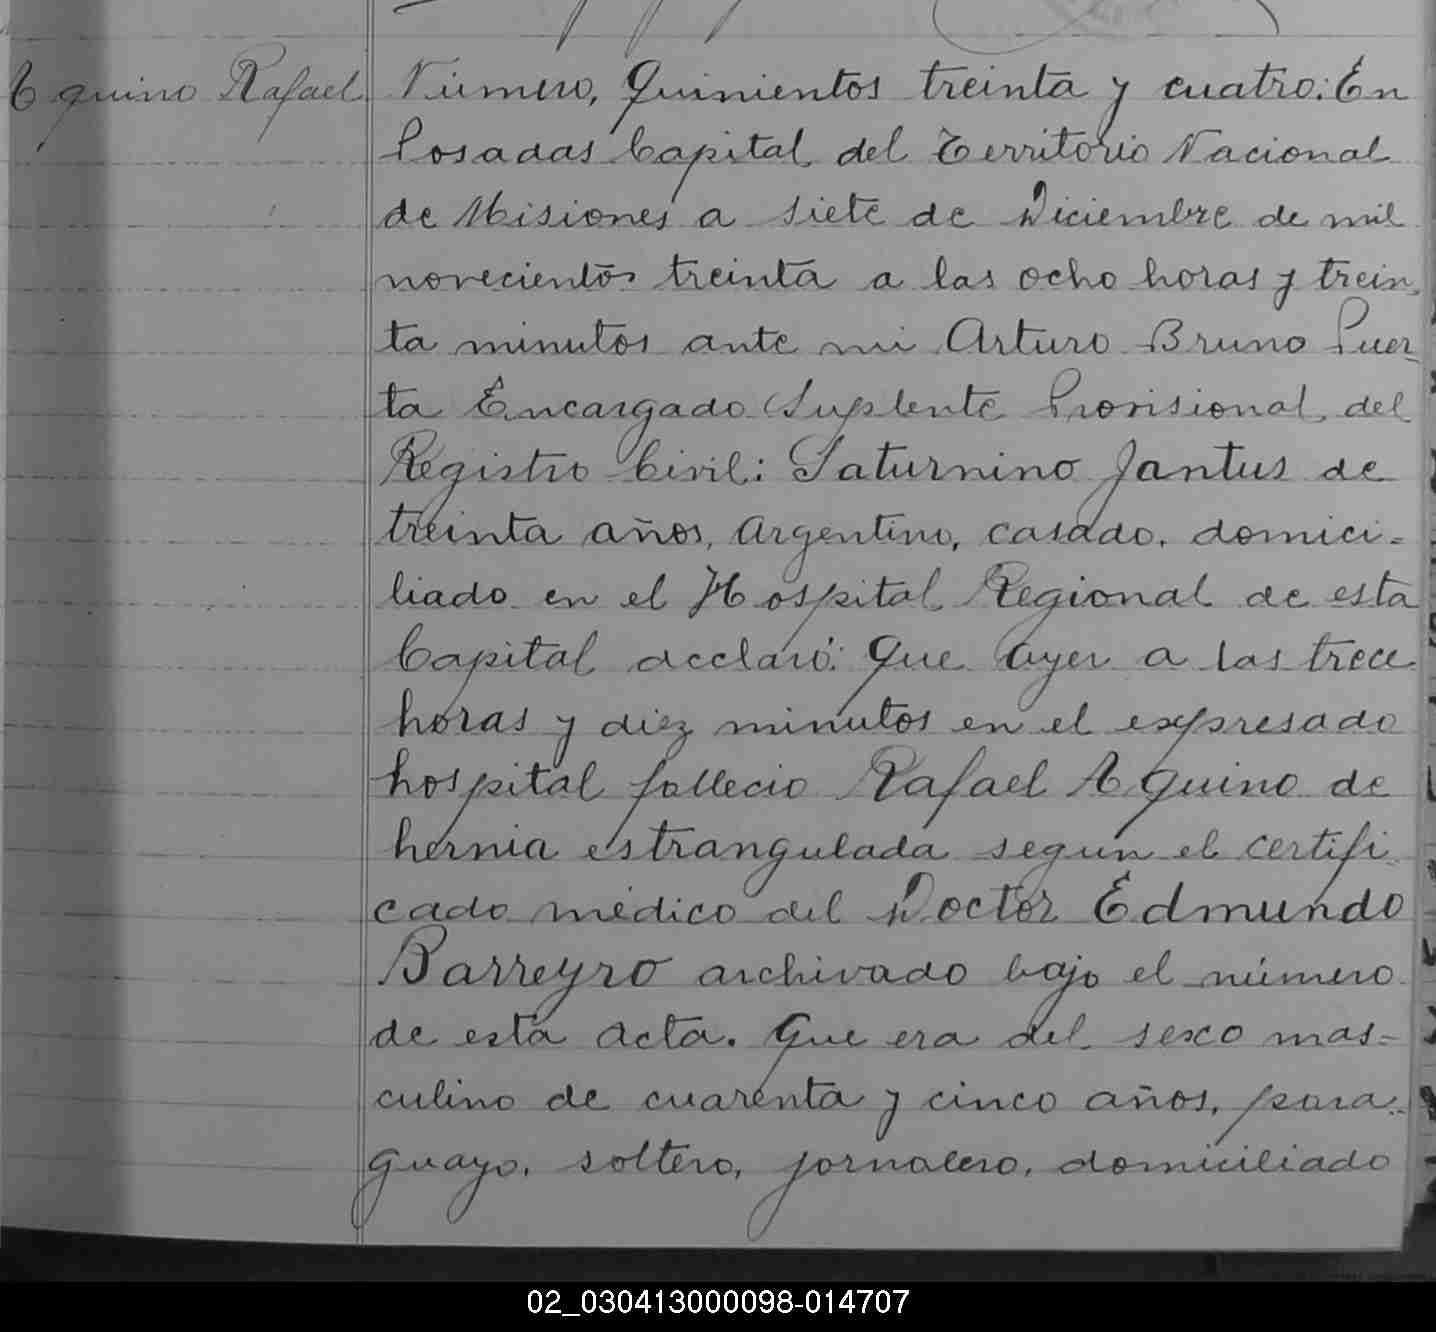 Aquino Rafael
Número, Quinientos treinta y cuatro: En
Posadas Capital del Territorio Nacional
de Misiones a siete de Diciembre de mil
novecientos treinta a las ocho horas y trein
ta minutos ante mi Arturo Bruno Puer
ta Encargado Suplente Provisional del
Registro Civil: Saturnino Jantus de
treinta años, Argentino, casado, domici-
liado en el Hospital Regional de esta
Capital declaró: Que ayer a las trece
horas y diez minutos en el expresado
hospital fallecio Rafael Aquino de
hernia estrangulada segun el certifi
cado médico del Doctor Edmundo
Barreyro archivado bajo el número
de esta acta. Que era del sexo mas-
culino de cuarenta y cinco años, para
guayo, soltero, jornalero, domiciliado
02_030413000098-014707